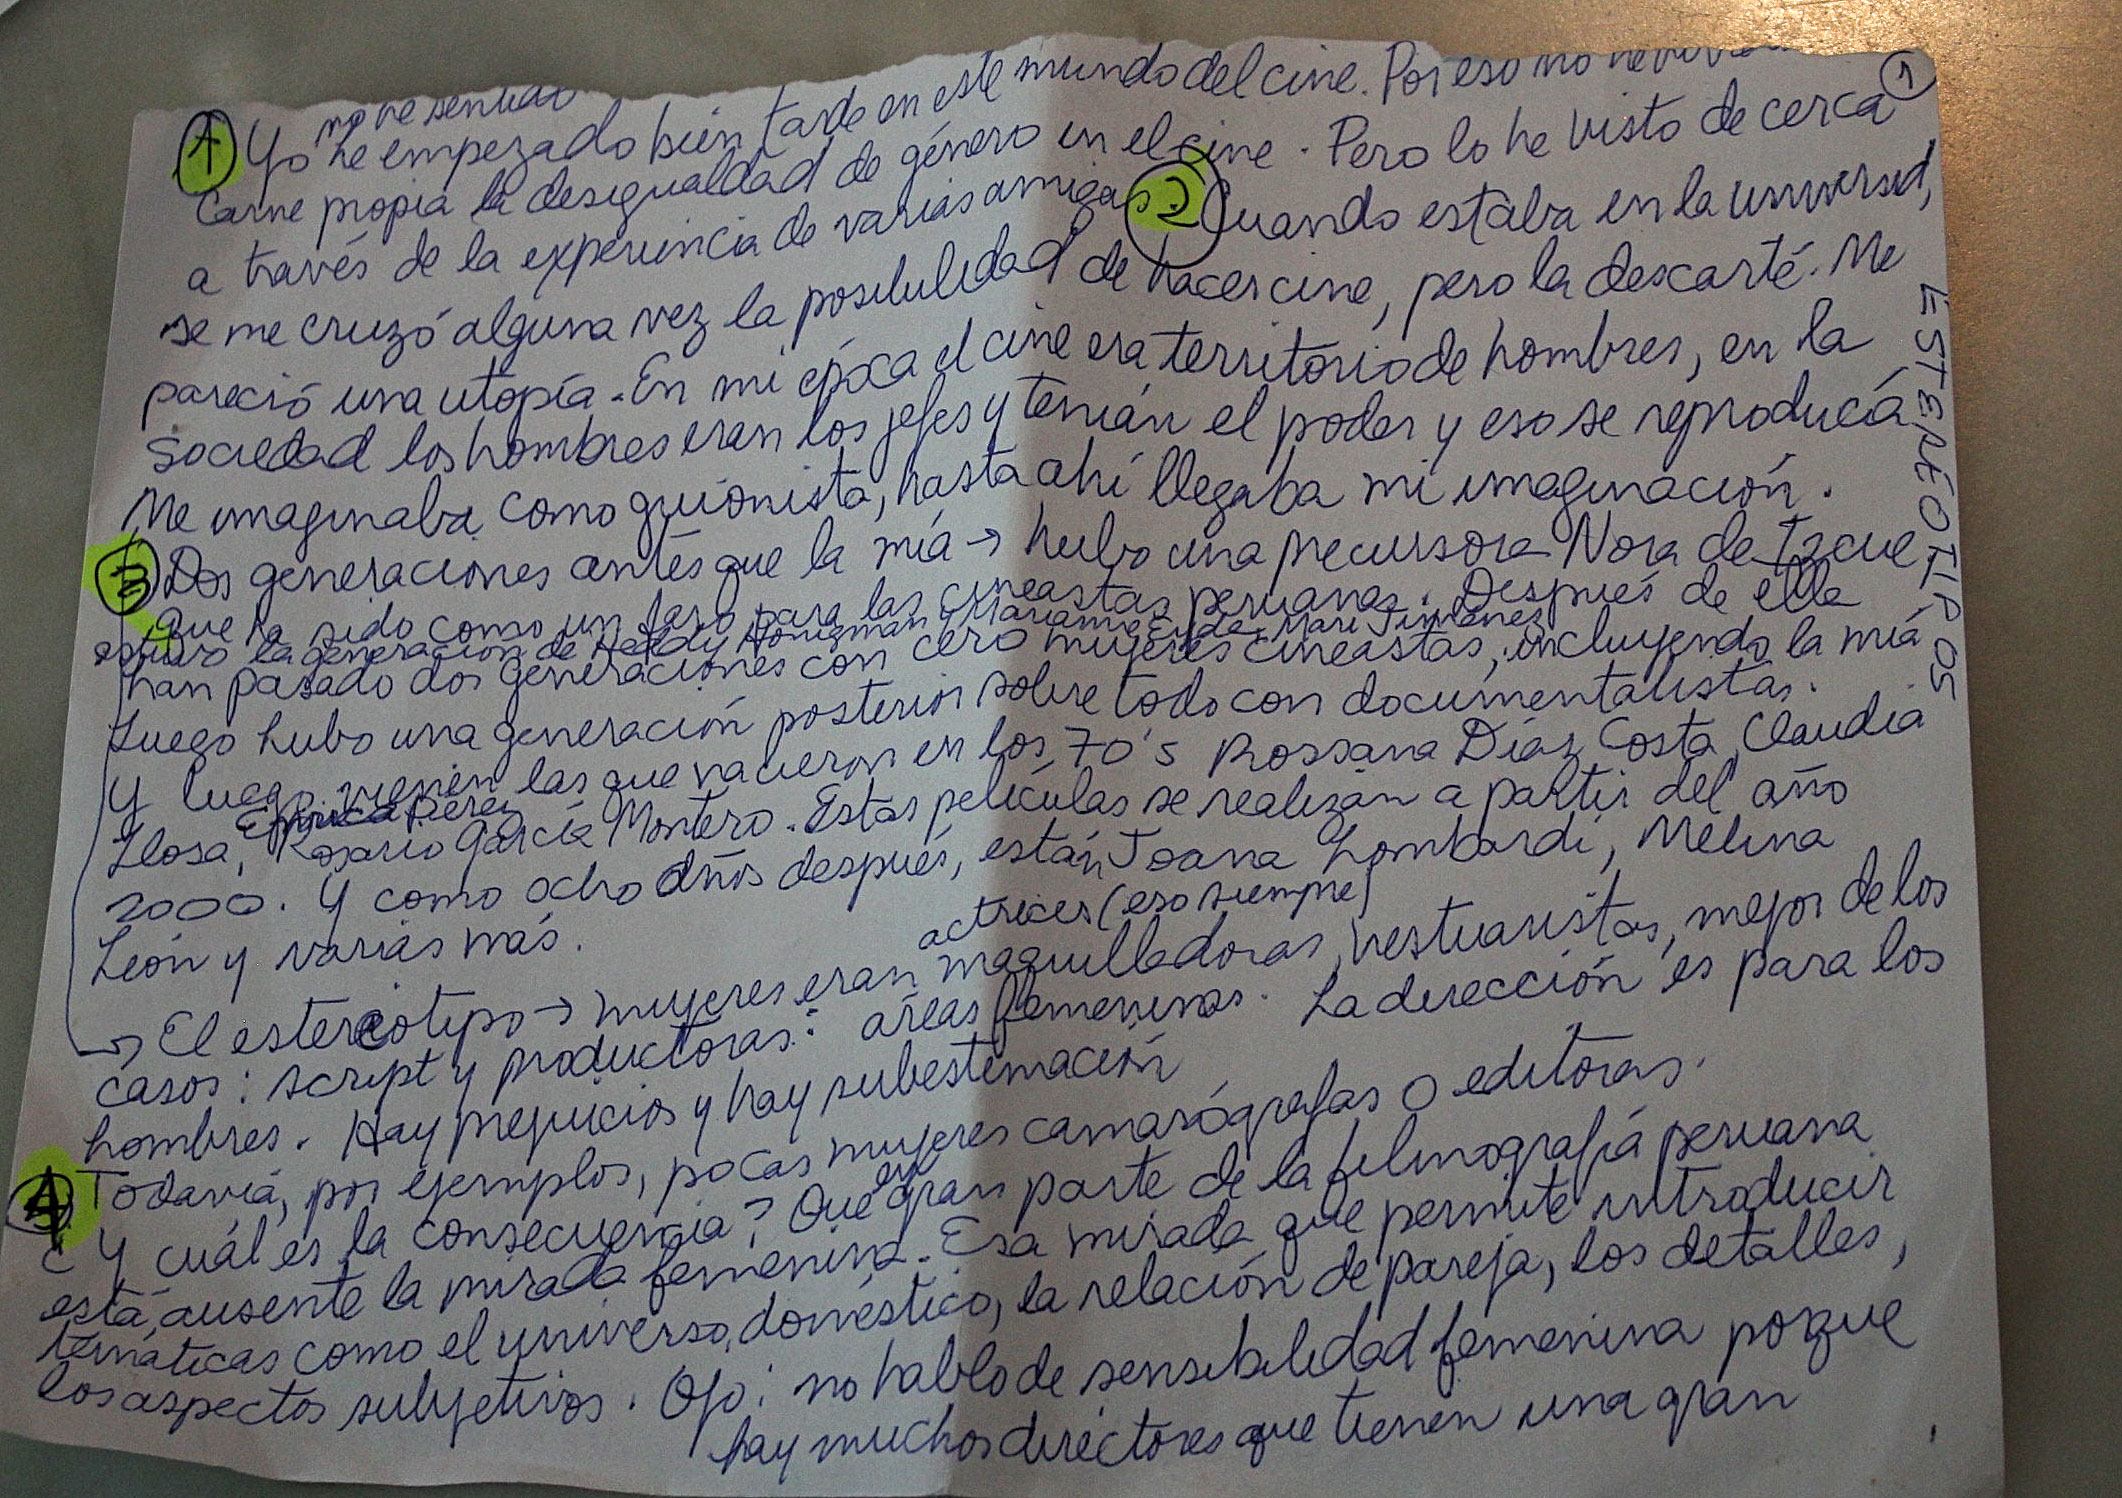 ①
no he sentido
① Yo he empezado bien tarde en este mundo del cine. Por eso no he vivido
carne propia la desigualdad de género en el cine. Pero lo he visto de cerca
a través de la experiencia de varias amigas. ② Cuando estaba en la universid,
se me cruzó alguna vez la posibilidad de hacer cine, pero la descarté. Me
pareció una utopía. En mi época el cine era territorio de hombres, en la
sociedad los hombres eran los jefes y tenían el poder y eso se reproducía
Me imaginaba como guionista, hasta ahí llegaba mi imaginación.
③ Dos generaciones antes que la mía → hubo una precursora Nora de Izcue
que ha sido como un faro para las cineastas peruanas. Después de ella
estuvo la generación de Heddy Honigman, Marianne Eyde, Mari Jiménez
han pasado dos generaciones con cero mujeres cineastas, incluyendo la mía
Luego hubo una generación posterior sobre todo con documentalistas.
Y luego vienen las que nacieron en los 70's Rossana Díaz Costa, Claudia
Enrica Pérez
Llosa, Rosario García Montero. Estas películas se realizan a partir del año
2000. Y como ocho años después, están Joana Lombardi, Melina
León y varias más.
actrices (eso siempre)
→ El estereotipo → mujeres eran maquilladoras, vestuaristas, mejor de los
casos: script y productoras: áreas femeninas. La dirección es para los
hombres. Hay prejuicios y hay subestimación
④ Todavía, por ejemplos, pocas mujeres camarógrafas o editoras.
¿Y cuál es la consecuencia? Que en gran parte de la filmografía peruana
está ausente la mirada femenina. Esa mirada que permite introducir
temáticas como el universo doméstico, la relación de pareja, los detalles,
los aspectos subjetivos. Ojo: no hablo de sensibilidad femenina porque
hay muchos directores que tienen una gran
ESTEREOTIPOS